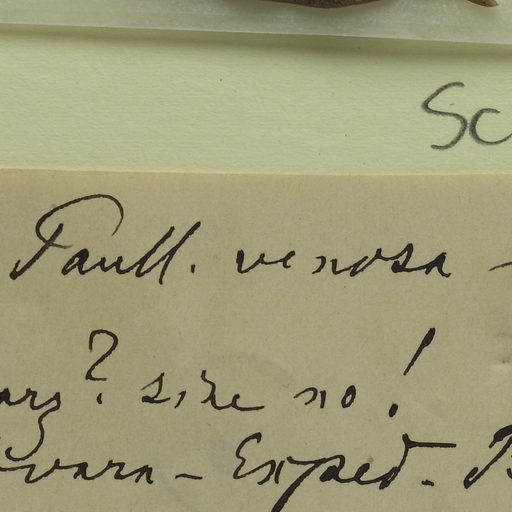 Sc
Paull. venosa -
arg? size no!
vara - Exped. B